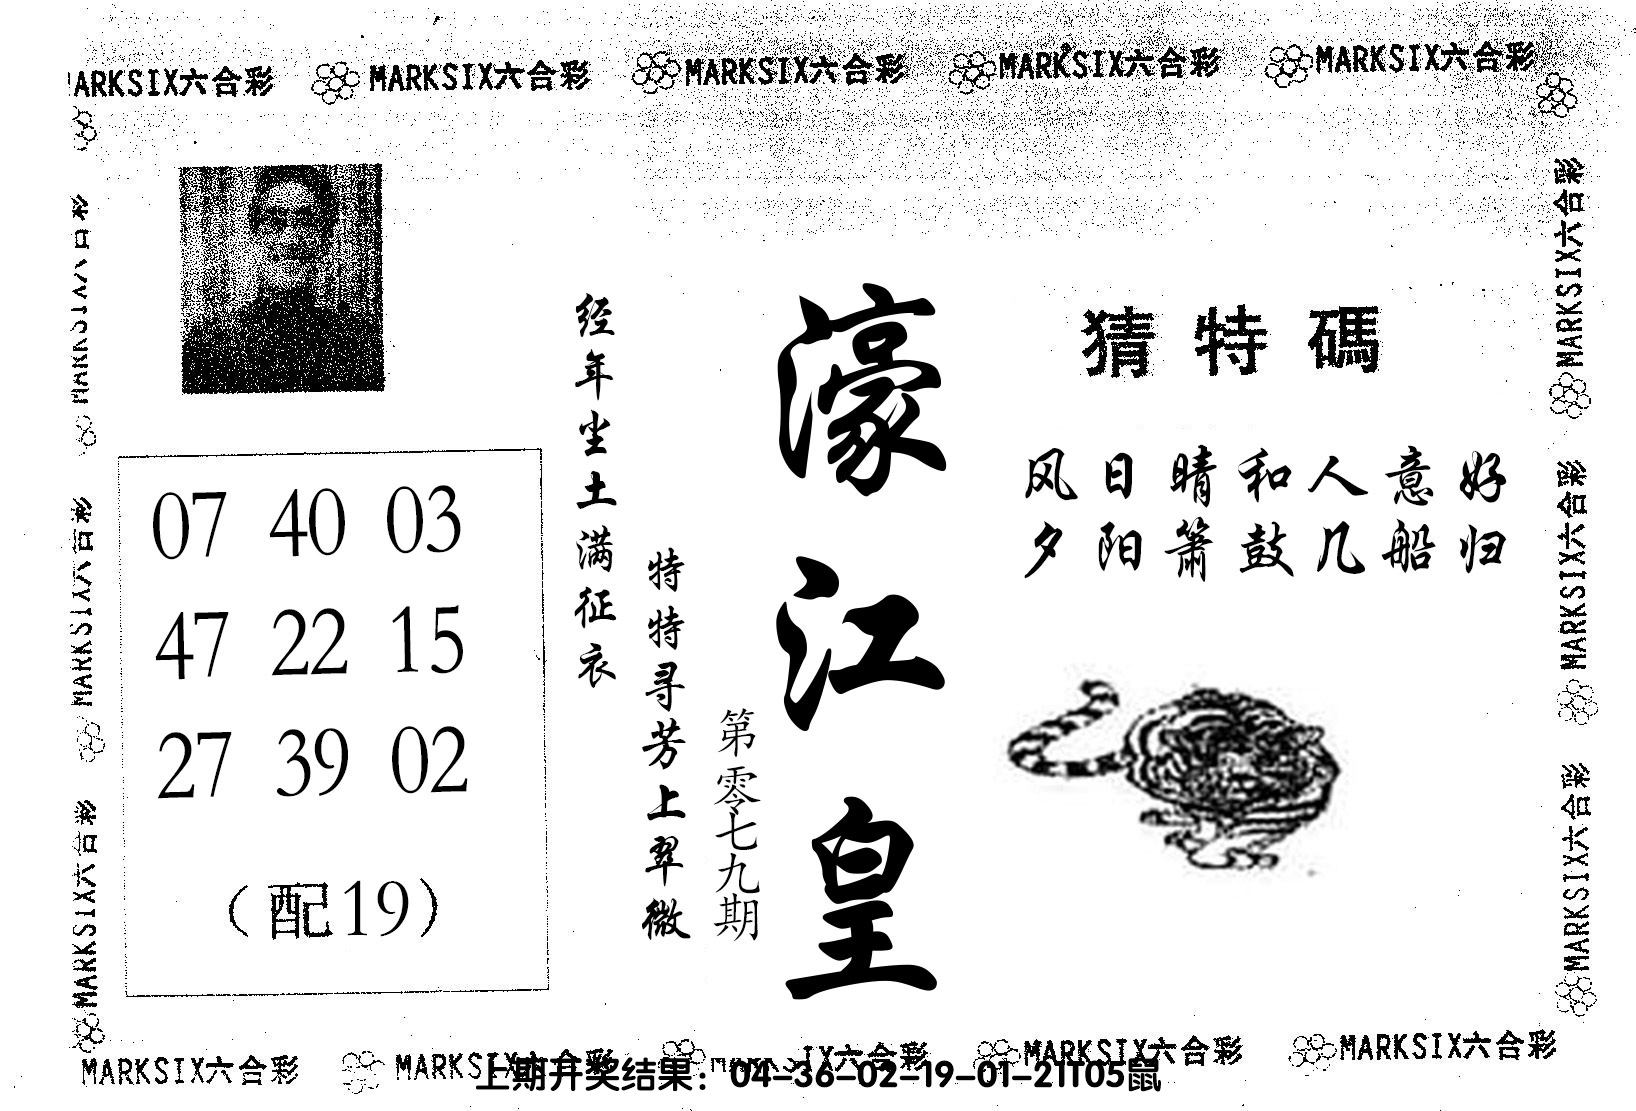 MARKSIX六合彩 MARKSIX六合彩 MARKSIX六合彩 MARKSIX六合彩 MARKSIX六合彩
猜特碼
风日晴和人意好
夕阳箫鼓几船归
濠江皇
第零七九期
经年尘土满征衣
特特寻芳上翠微
07 40 03
47 22 15
27 39 02
（配19）
MARKSIX六合彩
MARKSIX六合彩
MARKSIX六合彩
MARKSIX六合彩
MARKSIX六合彩
MARKSIX六合彩
MARKSIX六合彩 MARKSIX六合彩 IX六合彩 MARKSIX六合彩 MARKSIX六合彩
上期开奖结果：04-36-02-19-01-21T05鼠